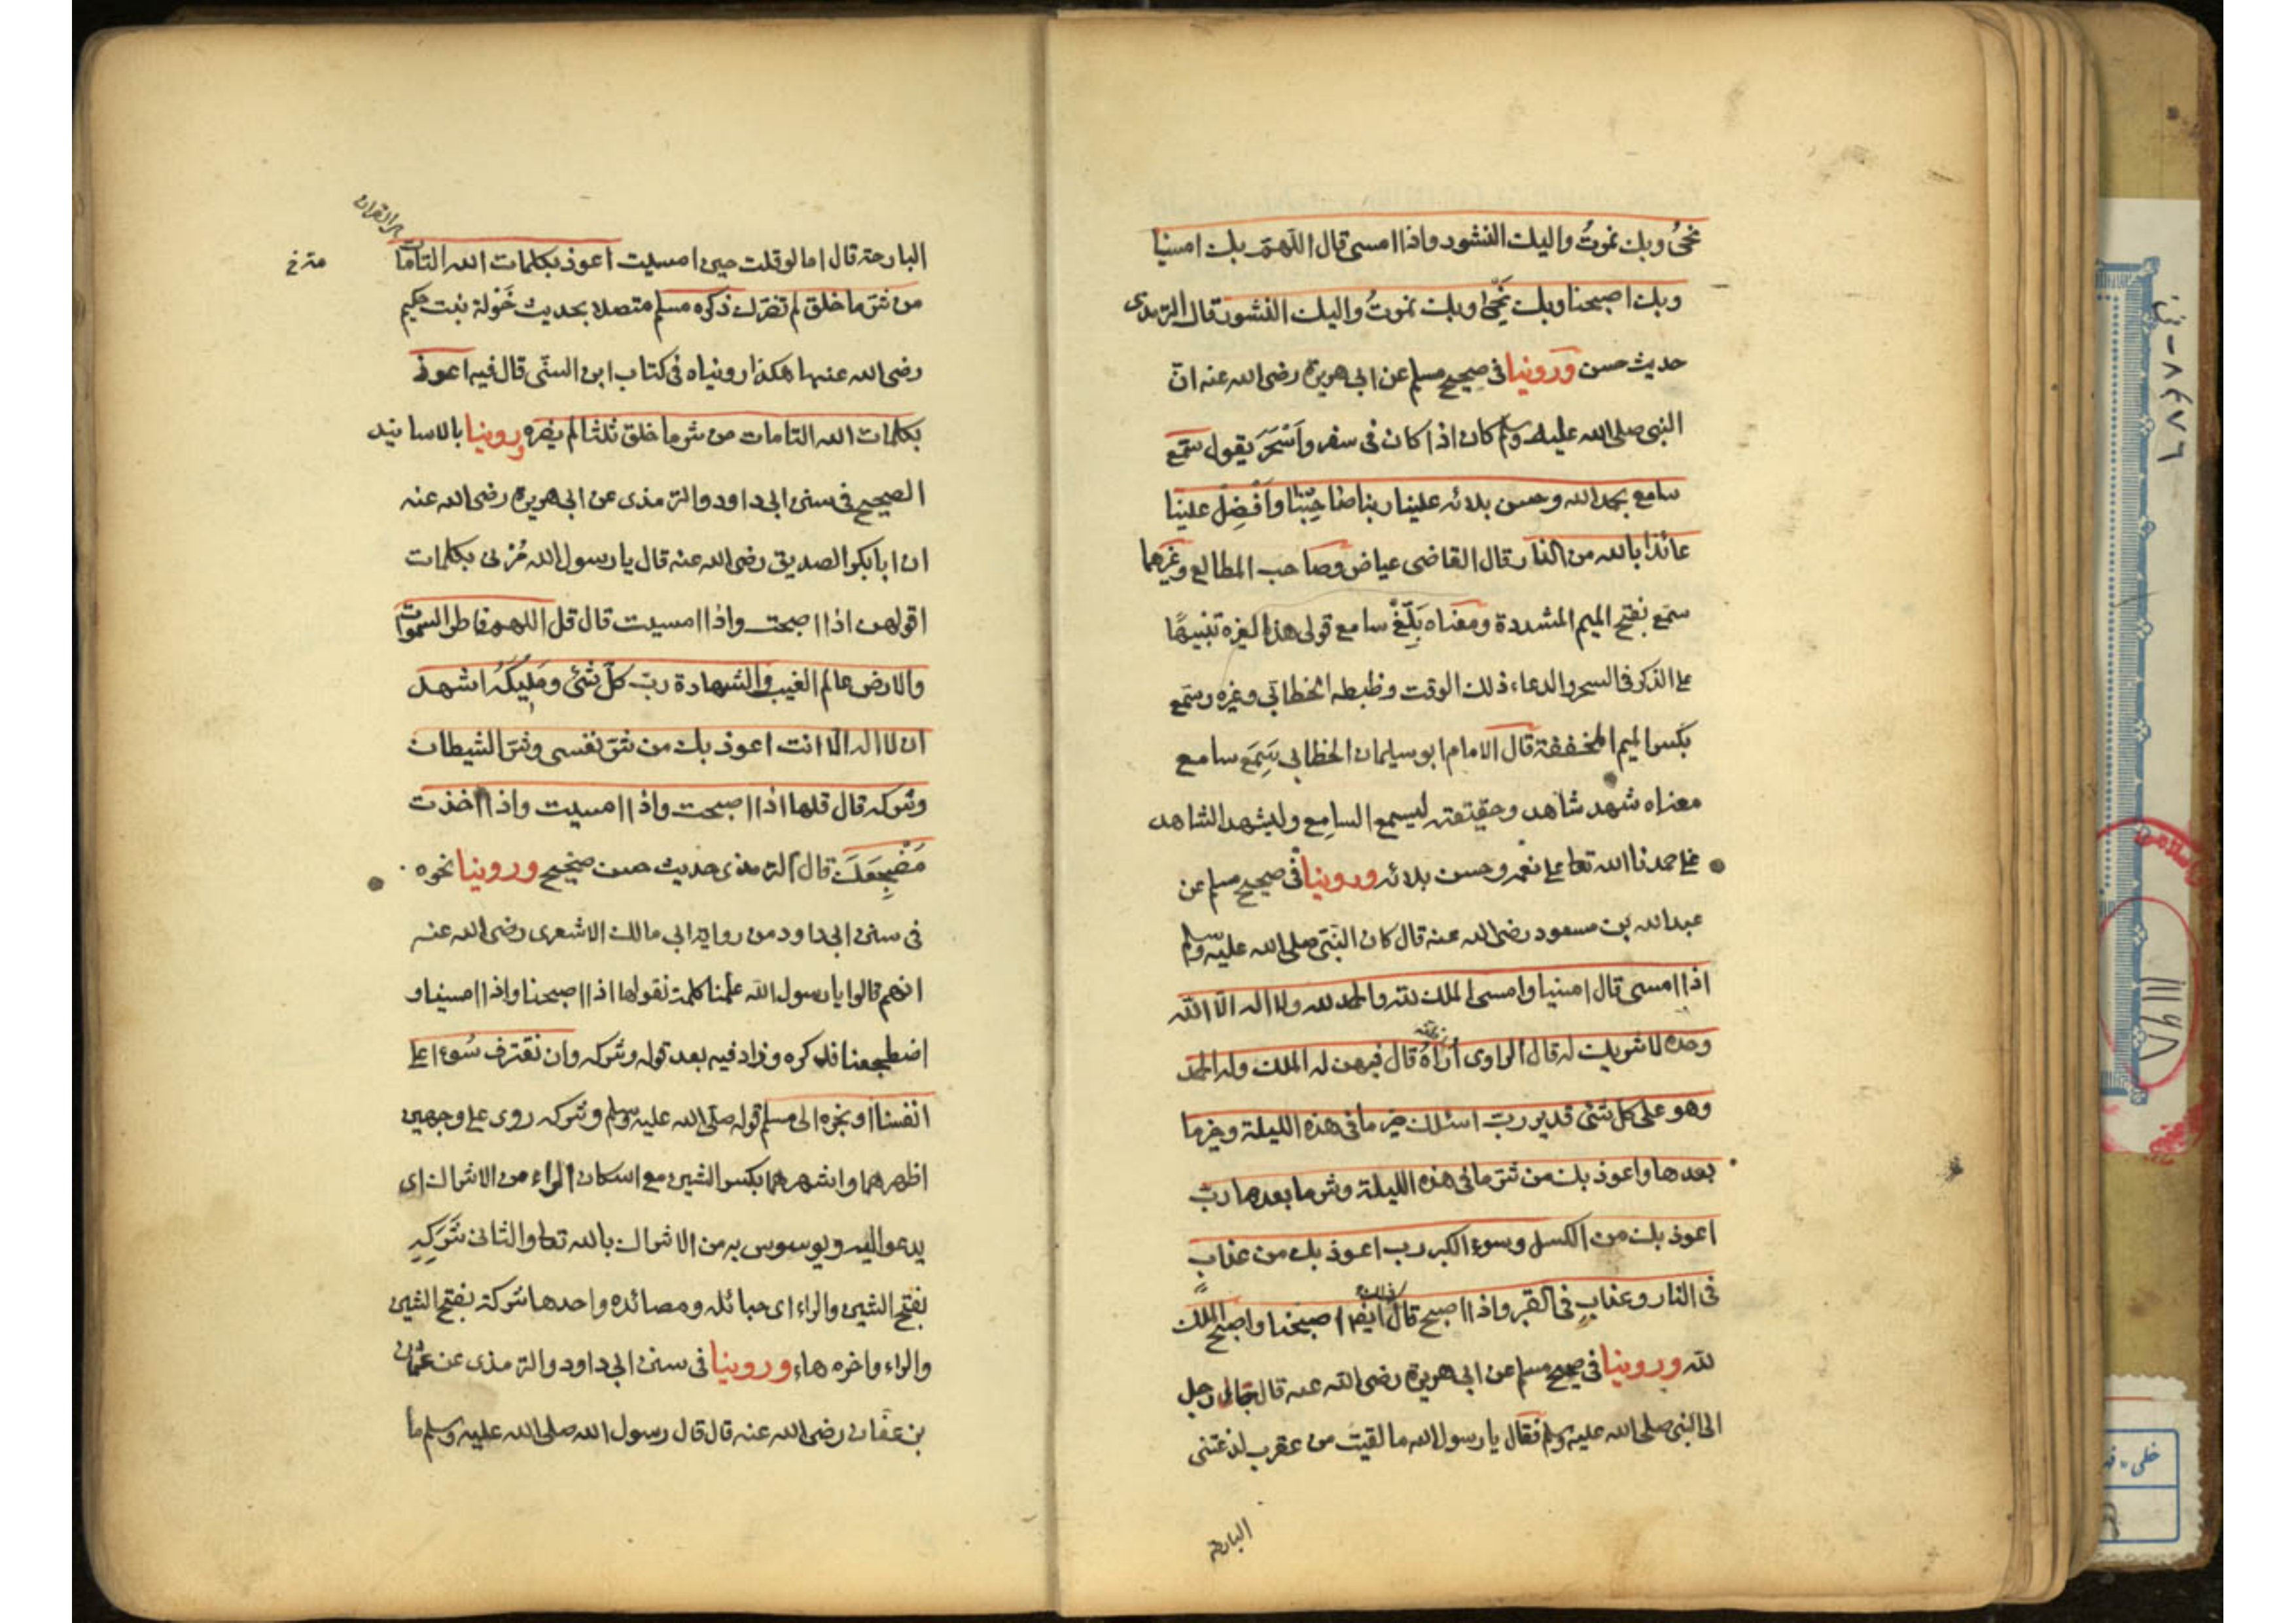 نحيُ وبك نموتُ واليك النشور واذا امسى قال اللهمّ بك امسينا
وبك اصبحنا وبك نحيَى وبك نموتُ واليك النشور قال الترمذى
حديث حسن وروينا فى صحيح مسلم عن ابى هريرة رضى الله عنه انّ
النبى صلى الله عليه وسلم كان اذا كان فى سفر واَسْحَرَ يقول سَمَّع
سامع بحمد الله وحسن بلائه علينا ربنا صَاحِبْنَا وَاَفْضِلْ علينا
عائذا بالله من النار قال القاضى عياض وصاحب المطالع وغيرهما
سمَّع بفتح الميم المشددة ومعناه بَلَّغَ سامع قولى هذا لغيره تنبيهًا
على الذكر فى السحر والدعاء ذلك الوقت وظبطه الخطابّي وغيره سمّع
بكسر الميم المخففة قال الامام ابو سليمان الخطابى سَمِعَ سامع
معناه شهد شاهد وحقيقته ليسمع السامع وليشهد الشاهد
على حمدنا الله تعا على نعمه وحسن بلائه وروينا فى صحيح مسلم عن
عبد الله بن مسعود رضى الله عنه قال كان النبّى صلى الله عليه وسلم
اذا امسى قال امسينا وامسى الملك لله والحمد لله ولا اله الّا الله
وحده لا شريك له قال الراوى أُرَاهُ قال فيهن له الملك وله الحمد
وهو على كل شئ قدير ربّ اسئلك خير ما فى هذه الليلة وخير ما
بعدها واعوذ بك من شرّ ما فى هذه الليلة وشر ما بعدها ربّ
اعوذ بك من الكسل وسوء الكبر رب اعوذ بك من عذابٍ
فى النار وعذابٍ فى القبر واذا اصبح قال ذلك ايضا اصبحنا واصبح الملك
لله وروينا فى صحيح مسلم عن ابى هريرة رضى الله عنه قال جاء رجل
الى النبى صلى الله عليه وسلم فقال يا رسول الله ما لقيت من عقرب لدغتنى
البارحة
البارحة قال اما لو قلت حين امسيت اعوذ بكلمات الله التامات
من شرّ ما خلق لم تضرك ذكره مسلم متصلا بحديث خَوْلة بنت حكيم
رضى الله عنها هكذا روينا ه فى كتاب ابن السنّى قال فيه اعوذ
بكلمات الله التامات من شر ما خلق ثلثا لم يضره وروينا بالاسانيد
الصحيح فى سنن ابى داود والترمذى عن ابى هريرة رضى الله عنه
ان ابا بكر الصديق رضى الله عنه قال يا رسول الله مُرْنى بكلمات
اقولهن اذا اصبحت واذا امسيت قال قل اللهم فاطر السموات
والارض عالم الغيب والشهادة ربّ كلّ شئ ومَلِيكَهُ اشهد
ان لا اله الّا انت اعوذ بك من شرّ نفسى وشرّ الشيطان
وشركه قال قلها اذا اصبحت واذا امسيت واذا اخذت
مَضْجِعَكَ قال الترمذى حديث حسن صحيح وروينا نحوه
فى سنن ابى داود من رواية ابى مالك الاشعرى رضى الله عنه
انهم قالوا يا رسول الله علّمنا كلمة نقولها اذا اصبحنا واذا امسينا و
اضطجعنا فذكره وزاد فيه بعد قوله وشركه وان نقترف سُوءا على
انفسنا او نجره الى مسلم قوله صلّى الله عليه وسلم وشركه روى على وجهين
اظهرهما واشهرهما بكسر الشين مع اسكان الراء من الاشراك اى
يدعو اليه ويوسوس به من الاشراك بالله تعا والثانى شَرَكِهِ
بفتح الشين والراء اى حبائله ومصائده واحدها شركة بفتح الشين
والراء واخره هاء وروينا فى سنن ابى داود والترمذى عن عثمان
بن عفّان رضى الله عنه قال قال رسول الله صلى الله عليه وسلم ما